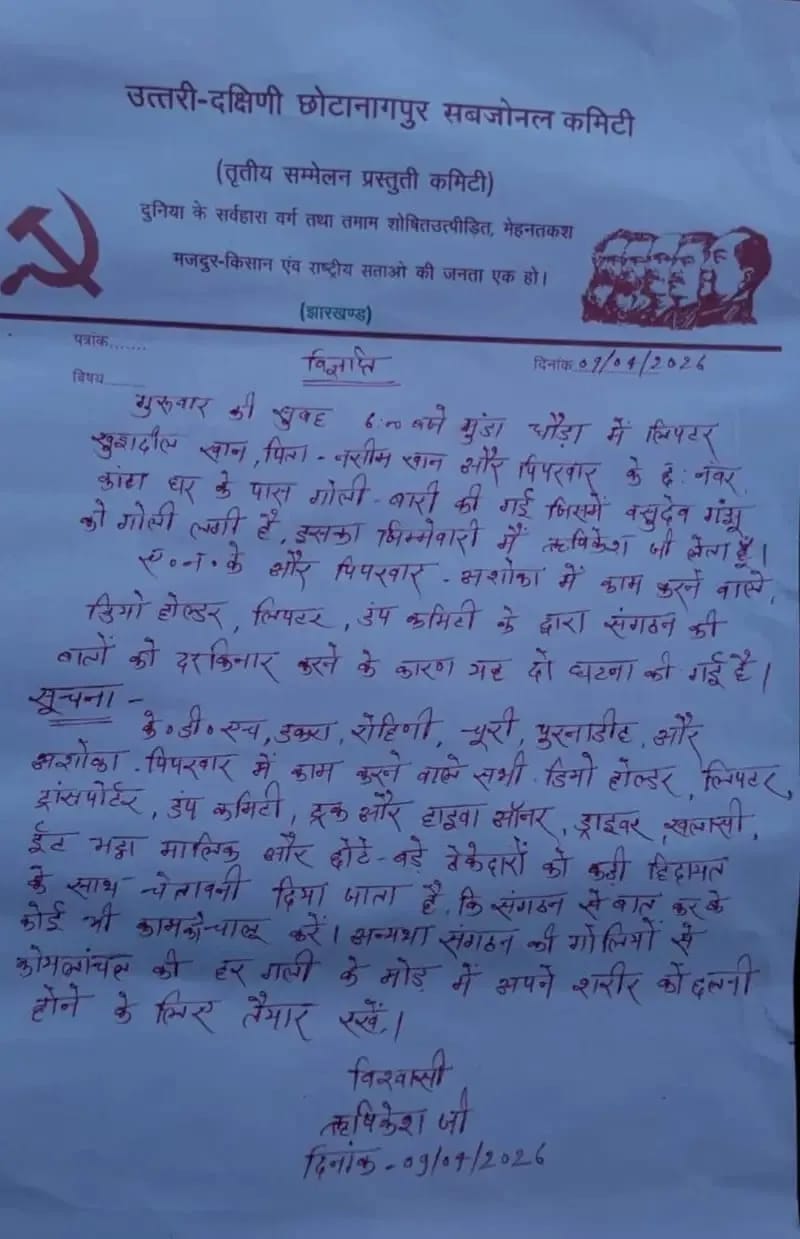 उत्तरी-दक्षिणी छोटानागपुर सबजोनल कमिटी
(तृतीय सम्मेलन प्रस्तुती कमिटी)
दुनिया के सर्वहारा वर्ग तथा तमाम शोषितउत्पीड़ित, मेहनतकश
मजदुर-किसान एंव राष्ट्रीय सताओ की जनता एक हो।
(झारखण्ड)
पत्रांक.......
विज्ञप्ति
दिनांक 09/04/2026
विषय......
गुरूवार की सुबह 6:00 बजे मुंडा चौड़ा में लिपटर
खुशदील खान, पिता - नसीम खान और पिपरवार के 6: नंबर
कांटा घर के पास गोली-बारी की गई जिसमें वसुदेव गंझू
को गोली लगी है, इसका जिम्मेवारी मैं ऋषिकेश जी लेता हूँ।
के और पिपरवार - अशोका में काम करने वाले,
डियो होल्डर, लिपटर, डंप कमिटी के द्वारा संगठन की
बातों को दरकिनार करने के कारण यह दो घटना की गई है।
सूचना -
के०डी०एच, डकरा, रोहिणी, चूरी, पुरनाडीह, और
अशोका - पिपरवार में काम करने वाले सभी डियो होल्डर, लिपटर,
ट्रांसपोर्टर, डंप कमिटी, ट्रक और हाइवा ऑनर, ड्राइवर, खलासी,
ईट भट्ठा मालिक और छोटे-बड़े ठेकेदारों को कड़ी हिदायत
के साथ चेतावनी दिया जाता है, कि संगठन से बात कर के
कोई भी काम को चालू करें। अन्यथा संगठन की गोलियों से
कोयलांचल की हर गली के मोड़ में अपने शरीर को छलनी
होने के लिए तैयार रखें।
विश्वासी
ऋषिकेश जी
दिनांक - 09/04/2026